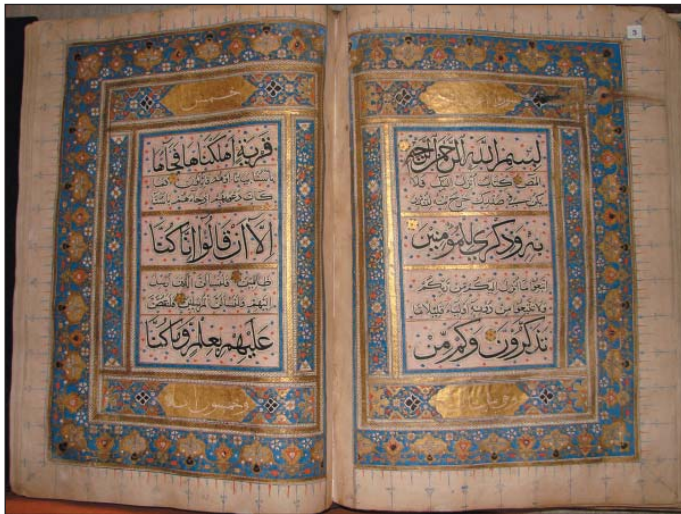 5
بسم الله الرحمن الرحيم
المص كتاب انزل اليك فلا
يكن في صدرك حرج منه لتنذر
به وذكرى للمؤمنين
اتبعوا ما انزل اليكم من ربكم
ولا تتبعوا من دونه اولياء قليلا ما
تذكرون وكم من
قرية اهلكناها فجاءها
باسنا بياتا او هم قائلون فما
كان دعواهم اذ جاءهم باسنا
الا ان قالوا انا كنا
ظالمين فلنسئلن الذين ارسل
اليهم ولنسئلن المرسلين فلنقصن
عليهم بعلم وما كنا